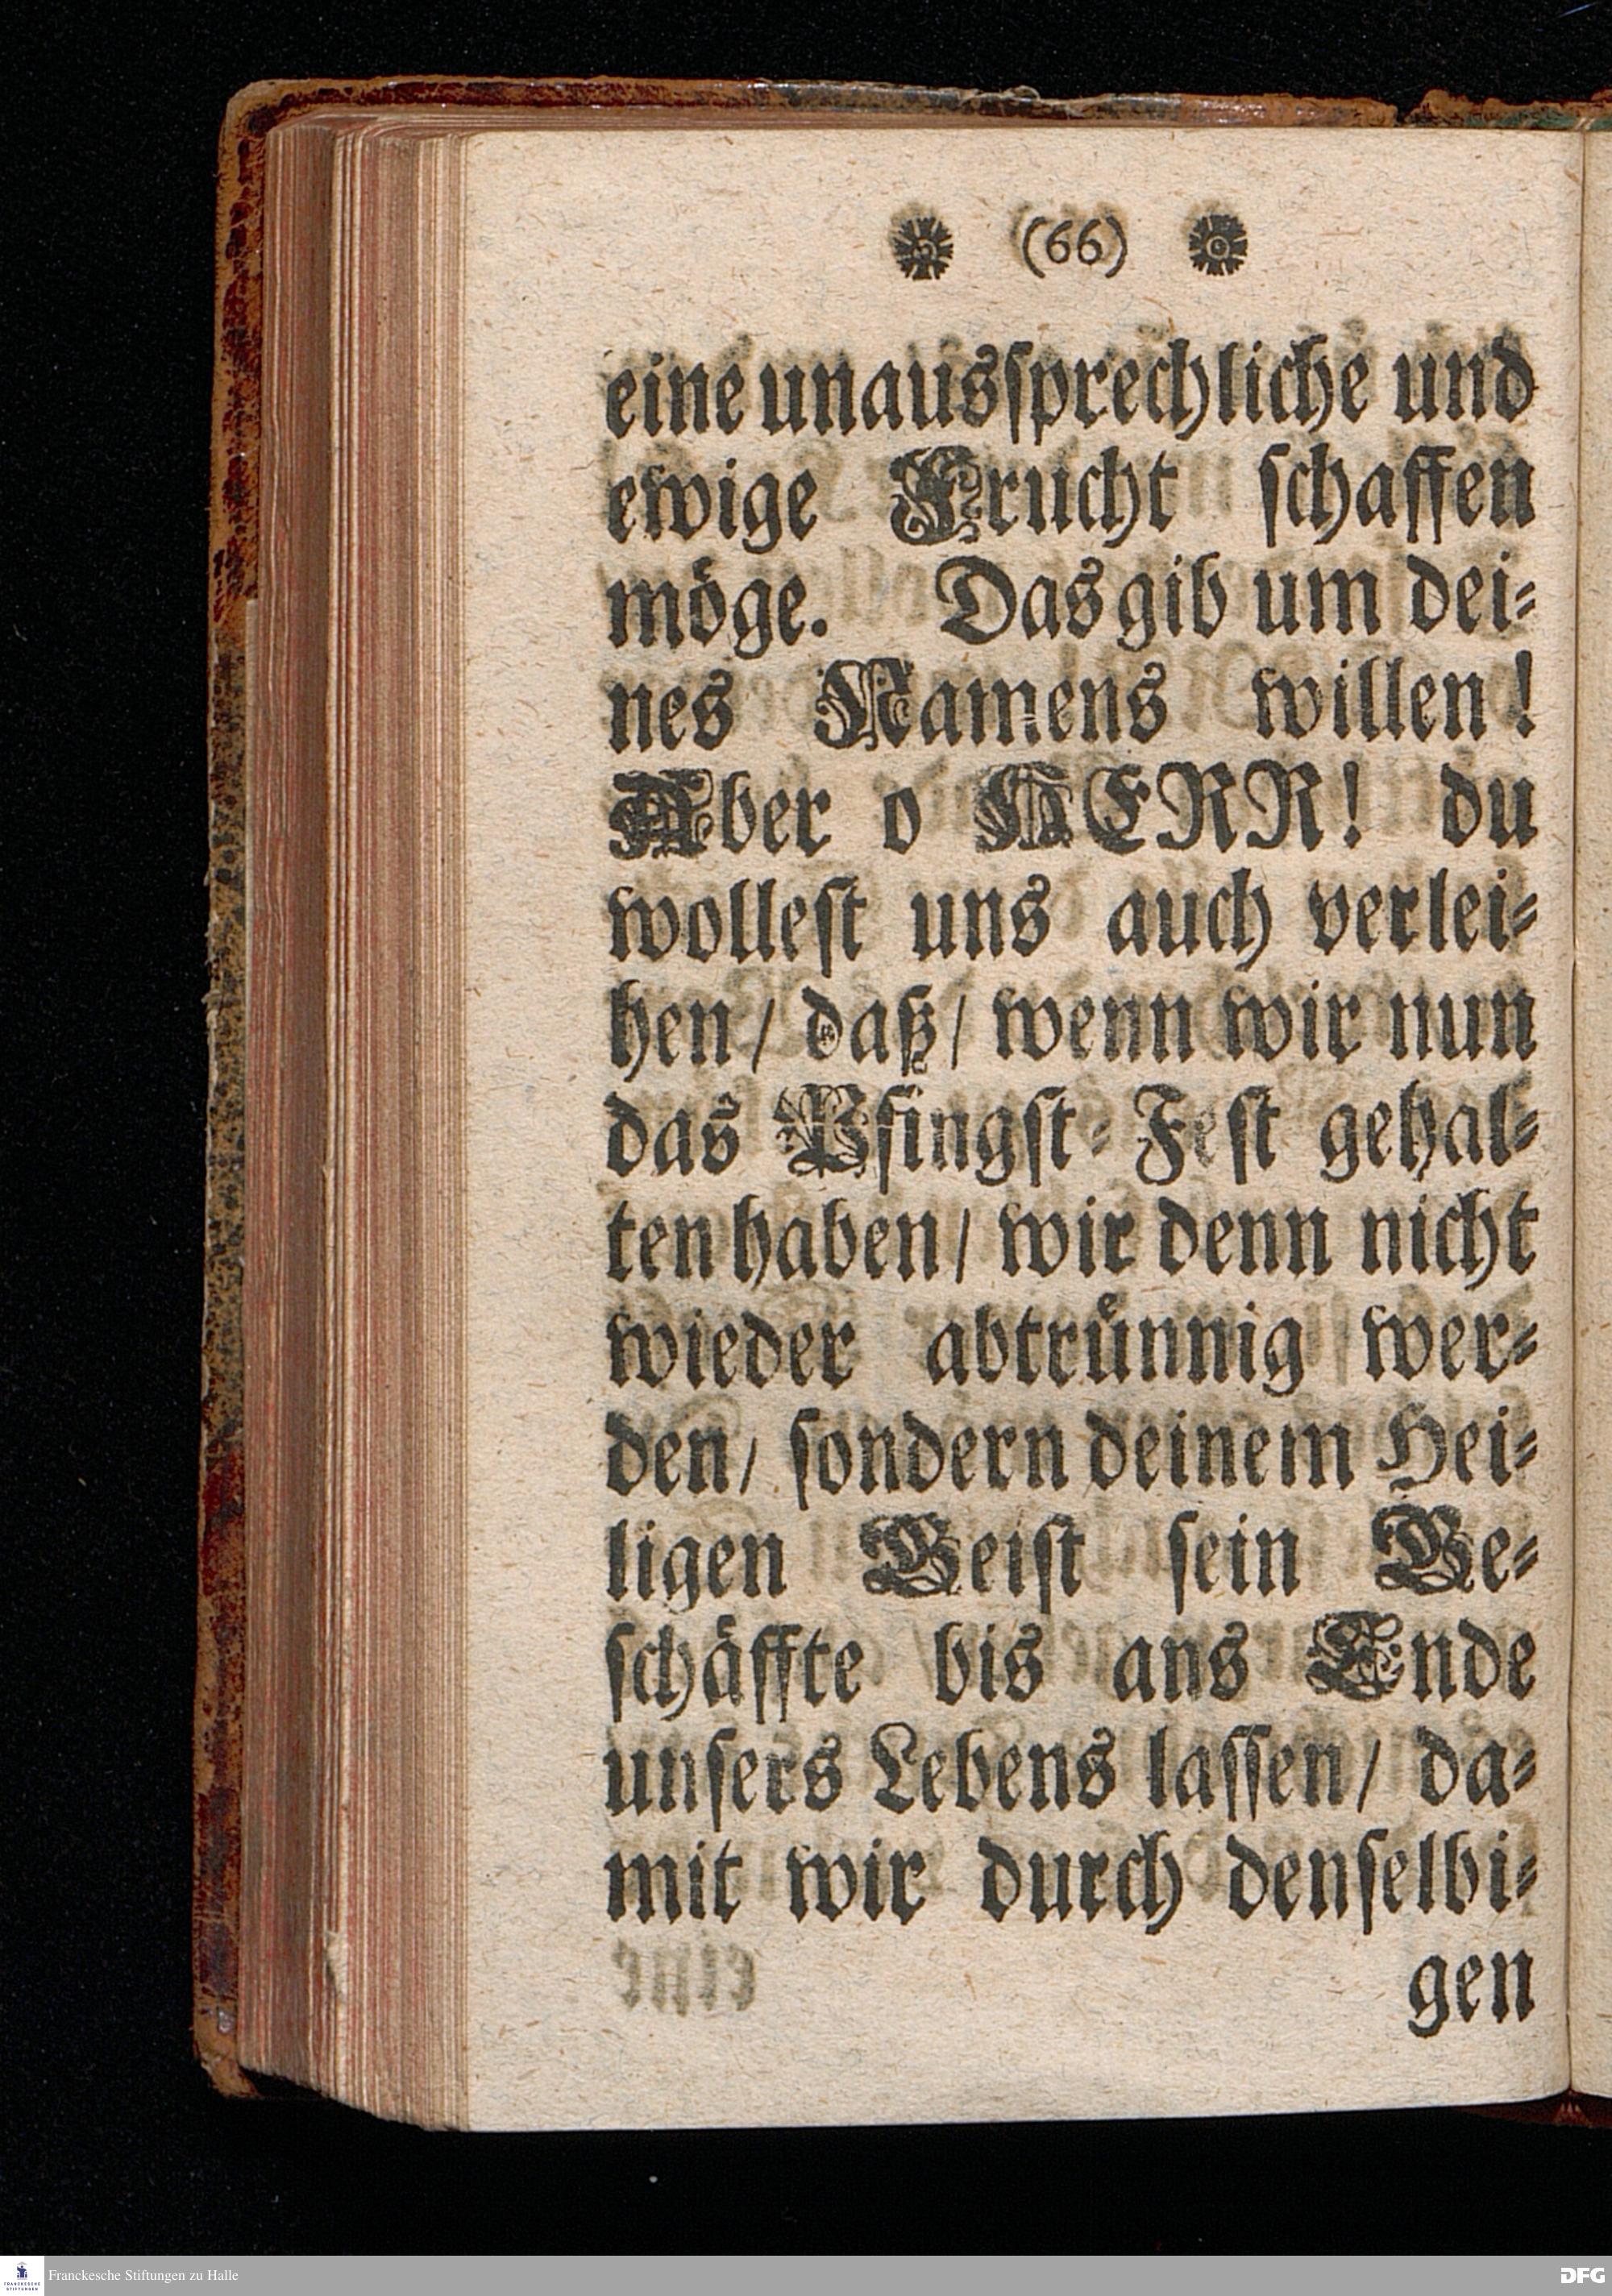 (66)
eine unausſprechliche und
ewige Frucht ſchaffen
möge. Das gib um dei⸗
nes Namens willen!
Aber o HERR! du
wolleſt uns auch verlei⸗
hen/ daß/ wenn wir nun
das Pfingſt⸗Feſt gehal⸗
ten haben/ wir denn nicht
wieder abtrünnig wer⸗
den/ ſondern deinem Hei⸗
ligen Geiſt ſein Ge⸗
ſchäffte bis ans Ende
unſers Lebens laſſen/ da⸗
mit wir durch denſelbi⸗
gen
FRANCKESCHE
STIFTUNGEN
Franckesche Stiftungen zu Halle
DFG